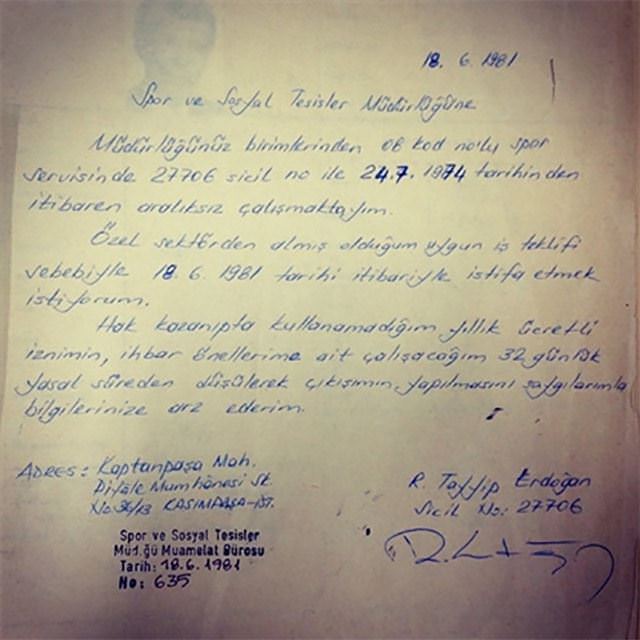 18. 6. 1981
Spor ve Sosyal Tesisler Müdürlüğüne
Müdürlüğünüz birimlerinden 08 kod no'lu spor
servisinde 27706 sicil no ile 24.7.1974 tarihinden
itibaren aralıksız çalışmaktayım.
Özel sektörden almış olduğum uygun iş teklifi
sebebiyle 18. 6. 1981 tarihi itibariyle istifa etmek
istiyorum.
Hak kazanıpta kullanamadığım yıllık ücretli
iznimin, ihbar önellerime ait çalışacağım 32 günlük
yasal süreden düşülerek çıkışımın yapılmasını saygılarımla
bilgilerinize arz ederim.
ADRES: Kaptanpaşa Mah.
Piyale Mumhanesi Sk.
KASIMPAŞA-İST.
R. Tayyip Erdoğan
Sicil No: 27706
Spor ve Sosyal Tesisler
Müd.ğü Muamelat Bürosu
Tarih: 18.6.1981
No: 635